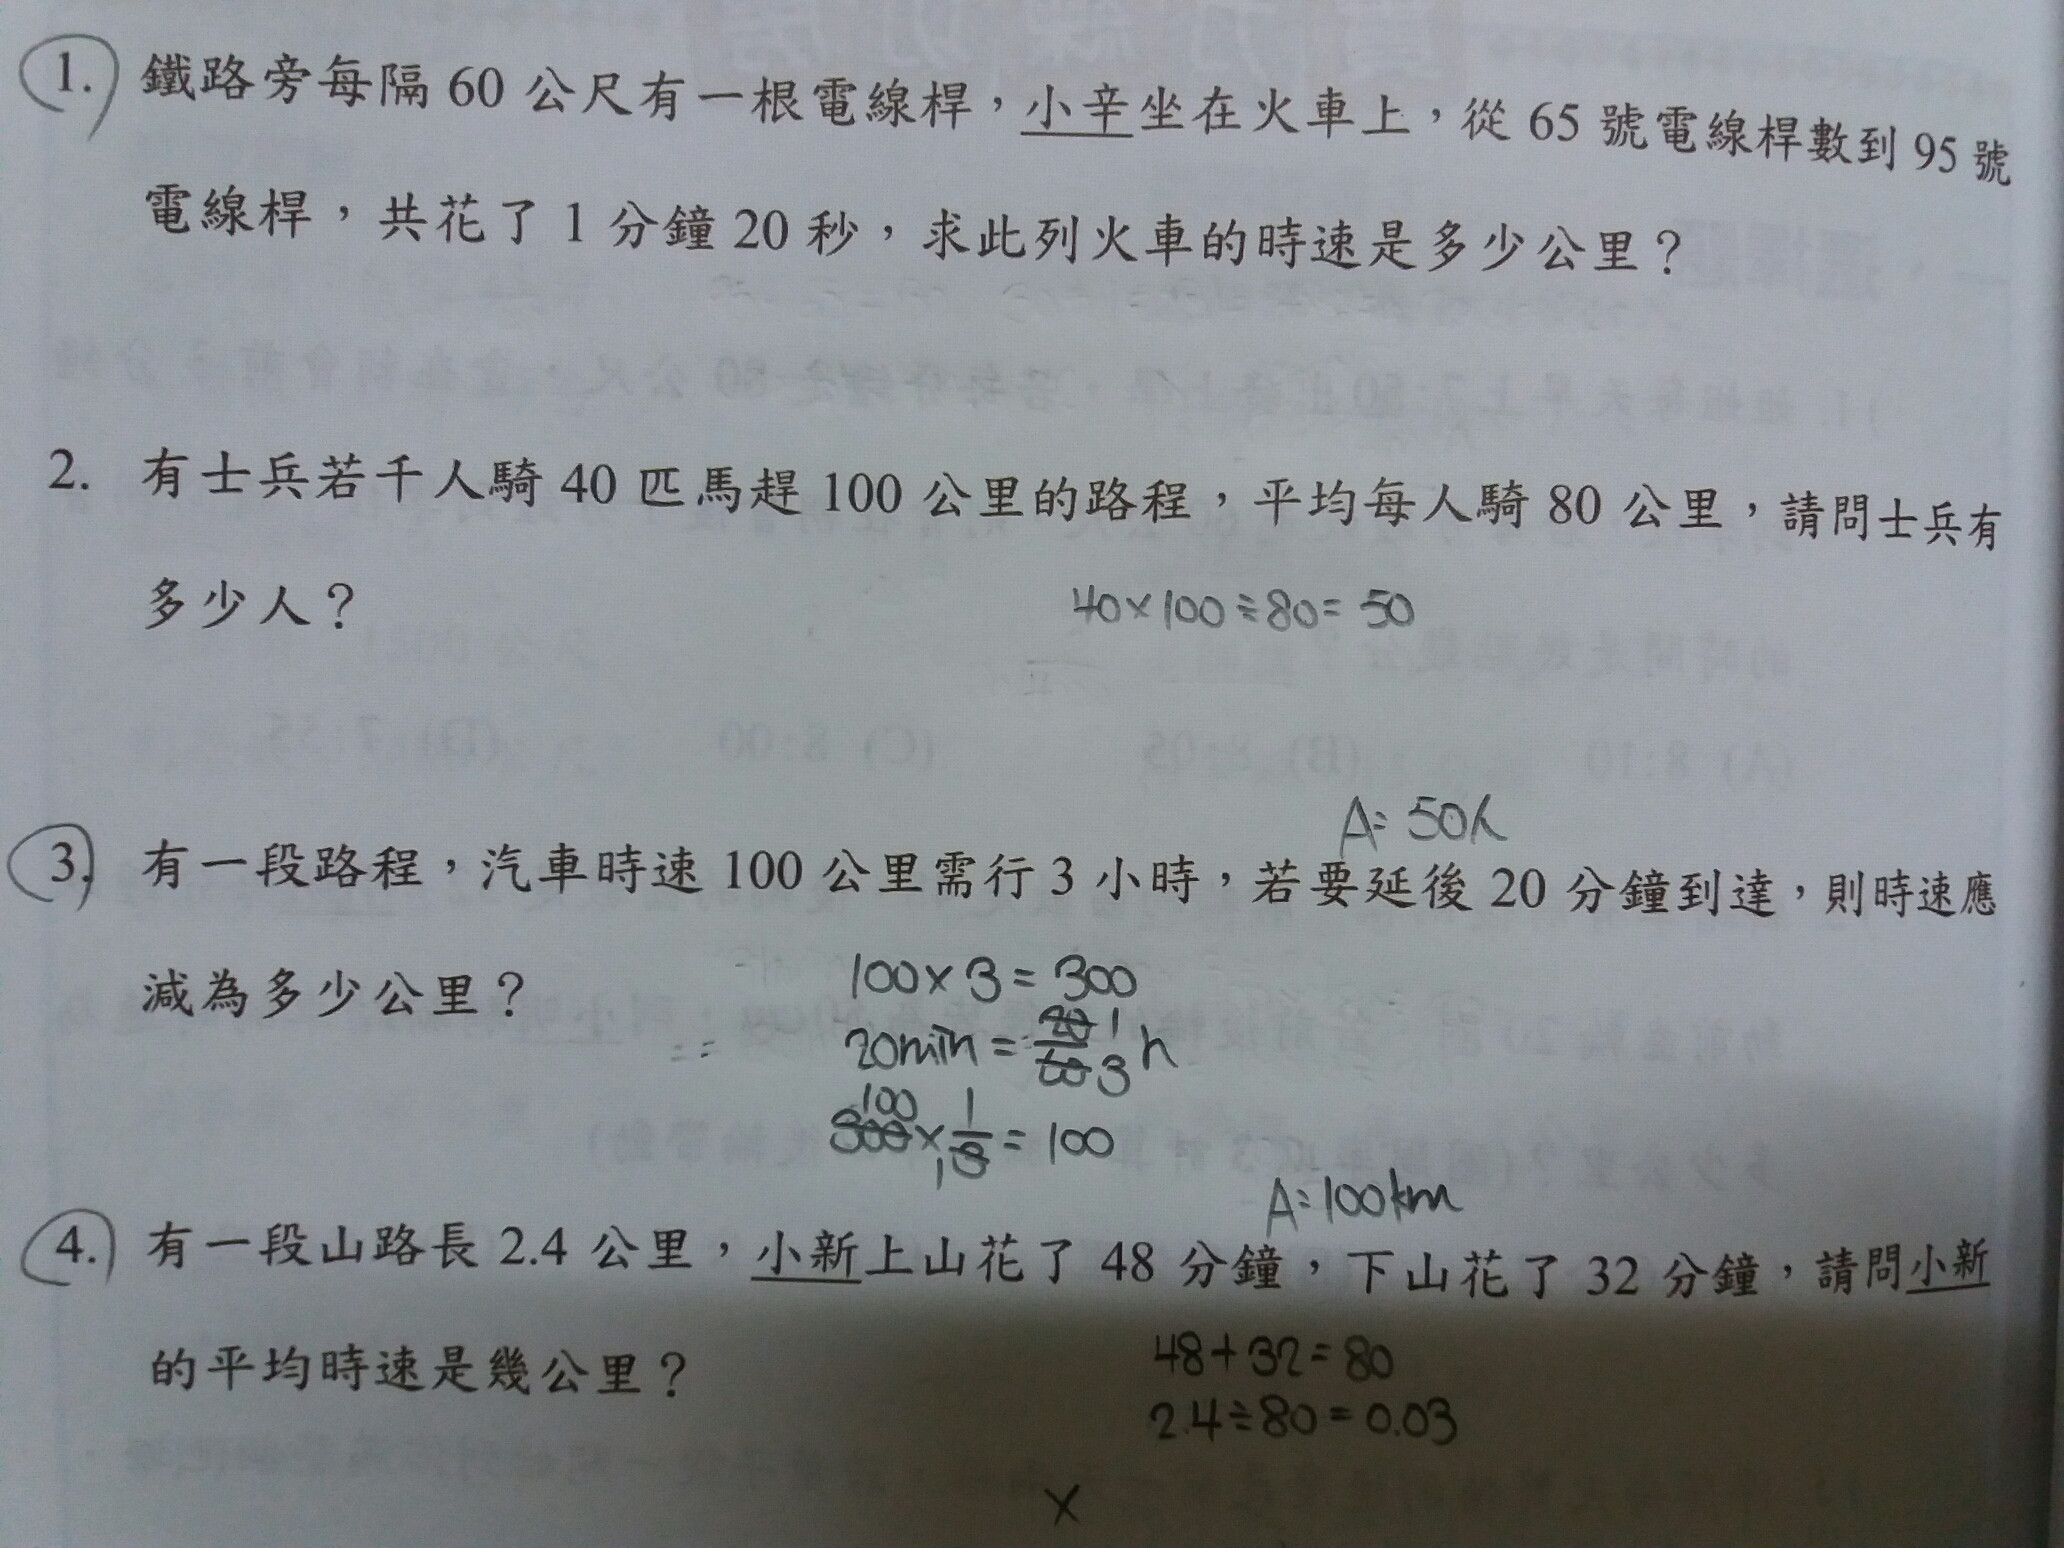 1. 鐵路旁每隔 60 公尺有一根電線桿，小辛坐在火車上，從 65 號電線桿數到 95 號
電線桿，共花了 1 分鐘 20 秒，求此列火車的時速是多少公里？
2. 有士兵若干人騎 40 匹馬趕 100 公里的路程，平均每人騎 80 公里，請問士兵有
多少人？
40×100÷80=50
A=50人
3. 有一段路程，汽車時速 100 公里需行 3 小時，若要延後 20 分鐘到達，則時速應
減為多少公里？
100×3=300
20min=20/60 1/3 h
300 100 × 1/3 1 = 100
A=100km
4. 有一段山路長 2.4 公里，小新上山花了 48 分鐘，下山花了 32 分鐘，請問小新
的平均時速是幾公里？
48+32=80
2.4÷80=0.03
×